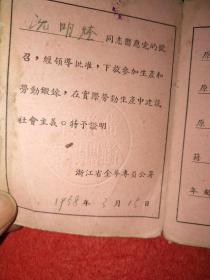 沈明隆 同志響應党的號
召，經領導批准，下放參加生產和
勞動鍛鍊，在實際勞動生產中建設
社會主義。特予證明
浙江省金華專員公署
1958年3月15日
原
原
原
籍
年